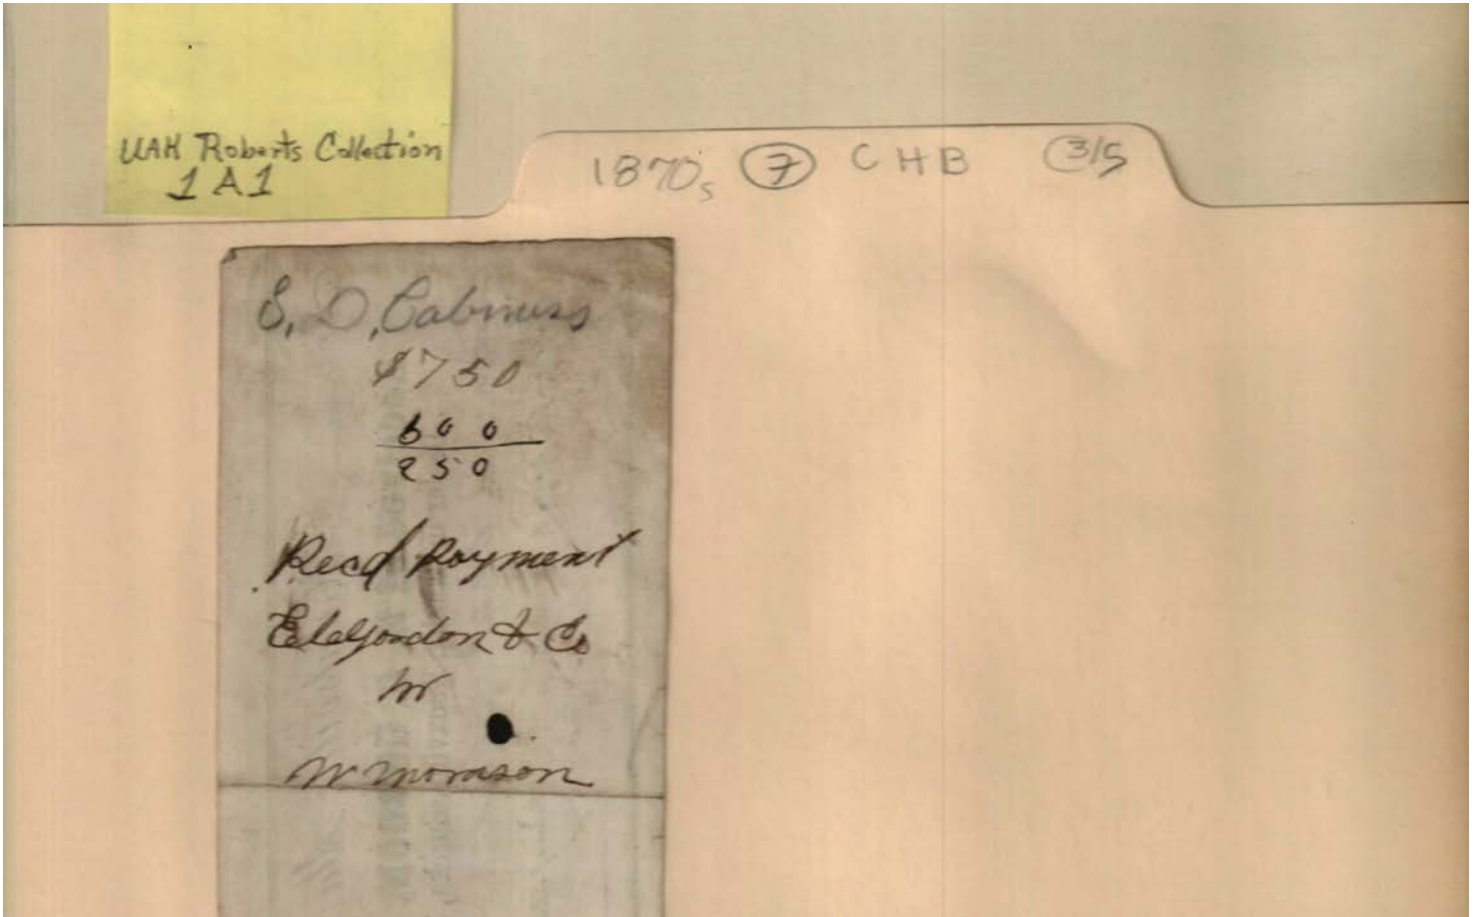 UAH Roberts Collection
1A1
1870s 7 CHB 3/5
S. D. Cabiness
$750
600
250
Recd Payment
& Co
W Morrison